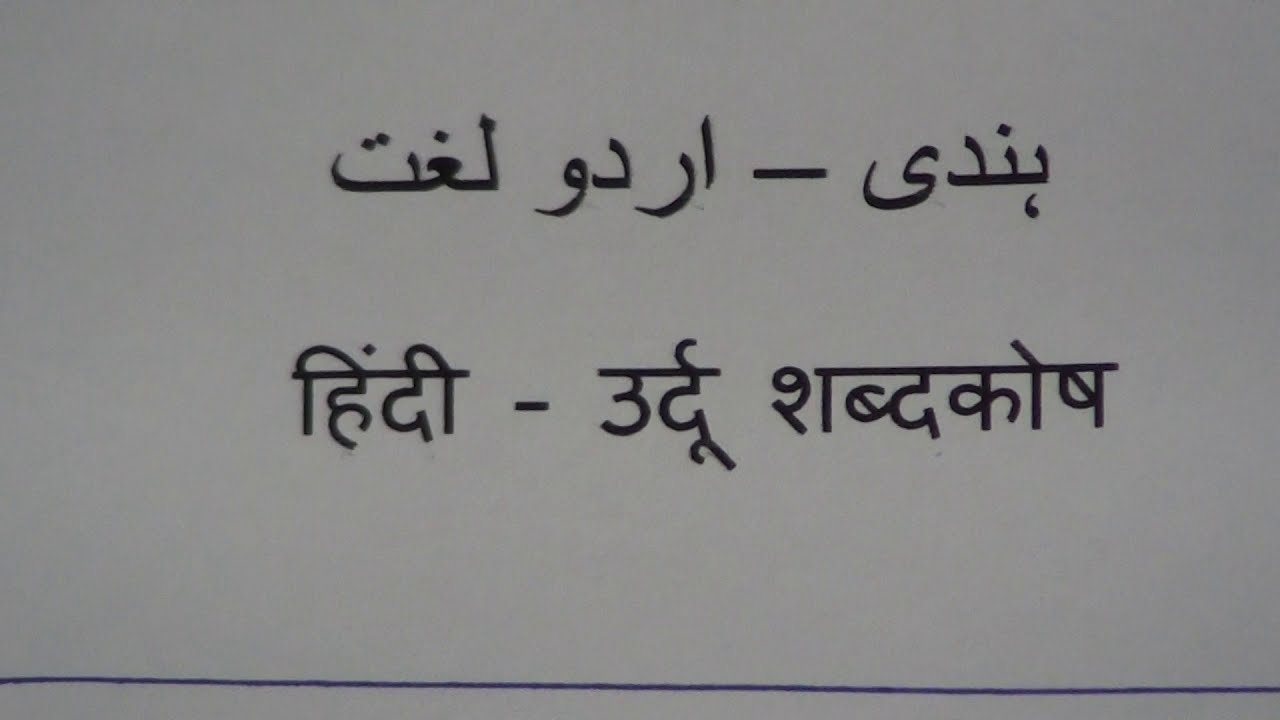 ہندی – اردو لغت
हिंदी - उर्दू शब्दकोष